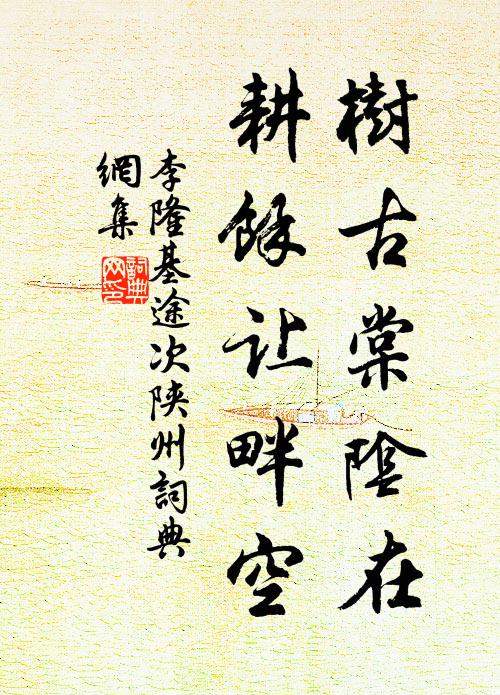 樹古棠陰在
耕餘让畔空
李隆基途次陕州詞典
網集
詞典網印